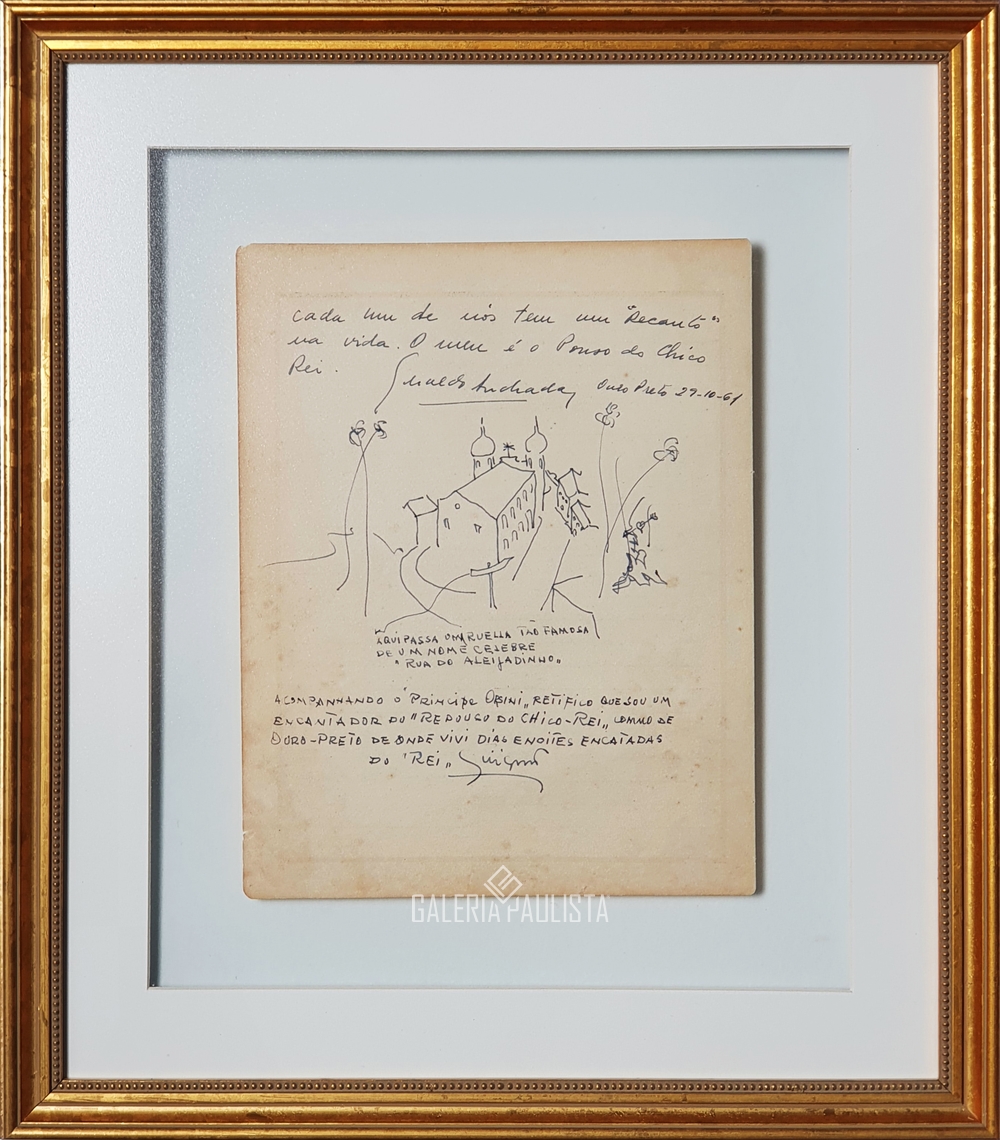 cada um de nós tem um "Recanto"
na vida. O meu é o Pouso do Chico
Rei.
Andrade, Ouro Preto 29-10-61
AQUI PASSA UMA RUELLA TÃO FAMOSA
DE UM NOME CELEBRE
"RUA DO ALEIJADINHO"
ACOMPANHANDO O "PRINCIPE OBINI" RETIFICO QUE SOU UM
ENCANTADOR DO "REPOUSO DO CHICO-REI" COMMO DE
OURO-PRETO DE ONDE VIVI DIAS E NOITES ENCATADAS
DO "REI" Guignard
GALERIA PAULISTA